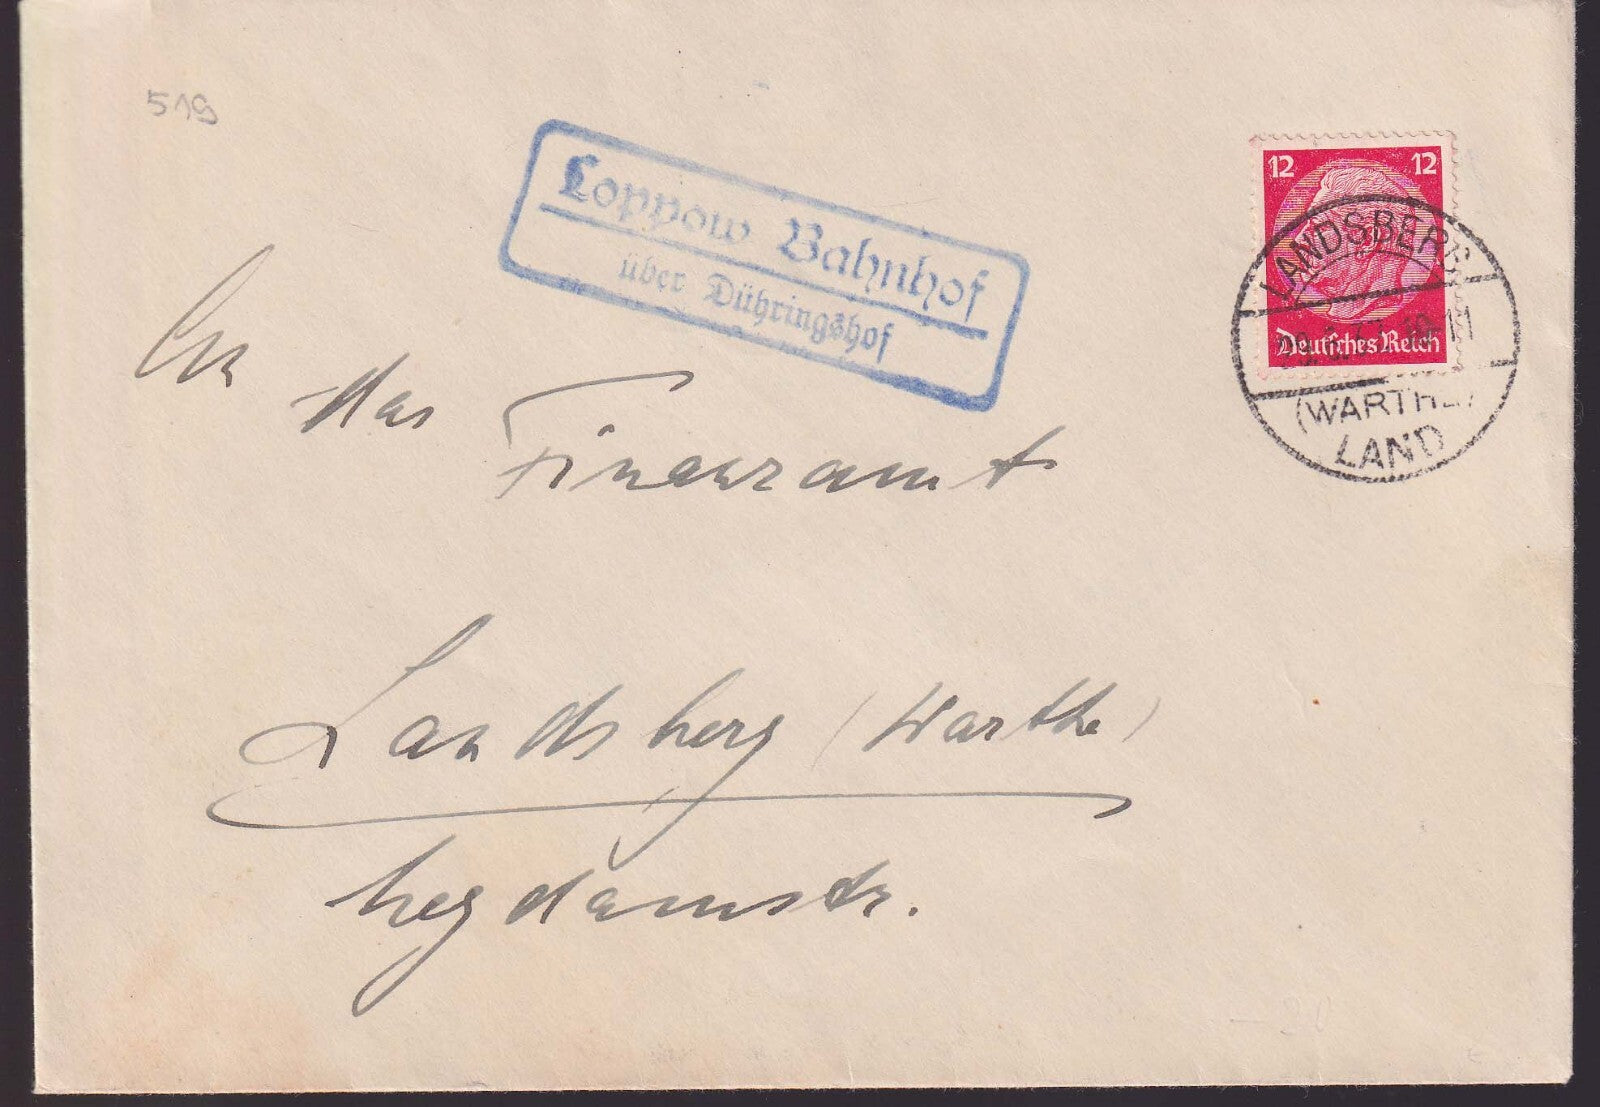 519
Loppow Bahnhof
über Dühringshof
12 12
Deutsches Reich
LANDSBERG
10-11
(WARTHE)
LAND
An
das
Finanzamt
Landsberg (Warthe)